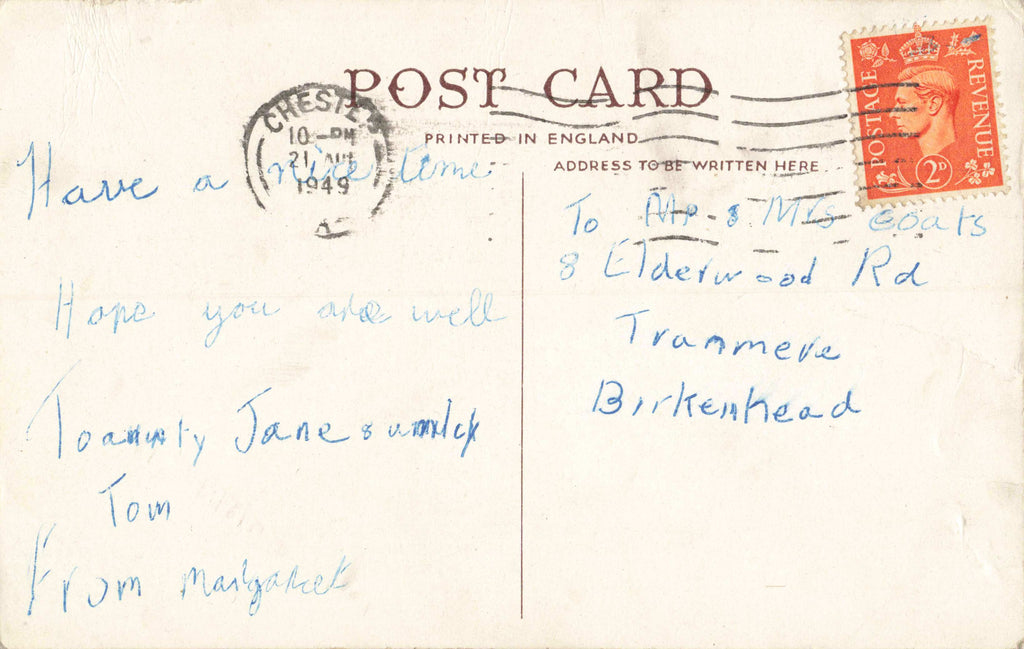 POST CARD
PRINTED IN ENGLAND
ADDRESS TO BE WRITTEN HERE
POSTAGE
REVENUE
2D
CHESTER
10 - PM
21
1949
Have a nice time
Hope you are well
To aunty Jane & unlck
Tom
From Margaret
To Mr & Mrs Coats
8 Elderwood Rd
Trammere
Birkenhead